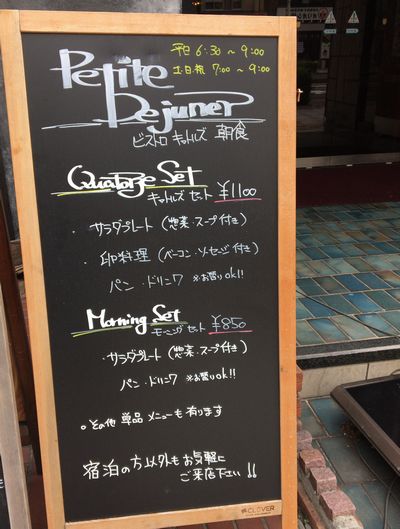 平日 6:30 ~ 9:00
土・日・祝 7:00 ~ 9:00
Petite
Dejuner
ビストロ キャトルズ 朝食
Quatorze Set
キャトルズ セット ¥1100
・サラダプレート (惣菜・スープ付き)
・卵料理 (ベーコン・ソーセージ付き)
パン・ドリンク ※お替りok!!
Morning Set
モーニング セット ¥850
・サラダプレート (惣菜・スープ付き)
パン・ドリンク ※お替りok!!
○その他 単品 メニューも有ります
宿泊の方以外もお気軽に
ご来店下さい!!
CLOVER